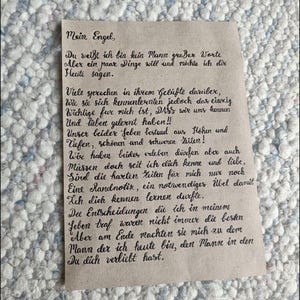 Mein Engel,
Du weißt ich bin kein Mann großer Worte
Aber ein paar Dinge will und möchte ich dir
Heute sagen.
Viele sprechen in ihrem Gelübde darüber,
Wie sie sich kennenlernten jedoch das einzig
Wichtige für mich ist, DASS wir uns kennen
Und lieben gelernt haben!!
Unser beider Leben bestand aus Höhen und
Tiefen, schönen und schweren Zeiten!
Wir haben beides erleben dürfen aber auch
Müssen doch seit ich dich kenne und liebe,
Sind die harten Zeiten für mich nur noch
Eine Randnotiz, ein notwendiges Übel damit
Ich dich kennen lernen durfte.
Die Entscheidungen die ich in meinem
Leben traf waren nicht immer die besten
Aber am Ende machten sie mich zu dem
Mann der ich heute bin, den Mann in den
Du dich verliebt hast.